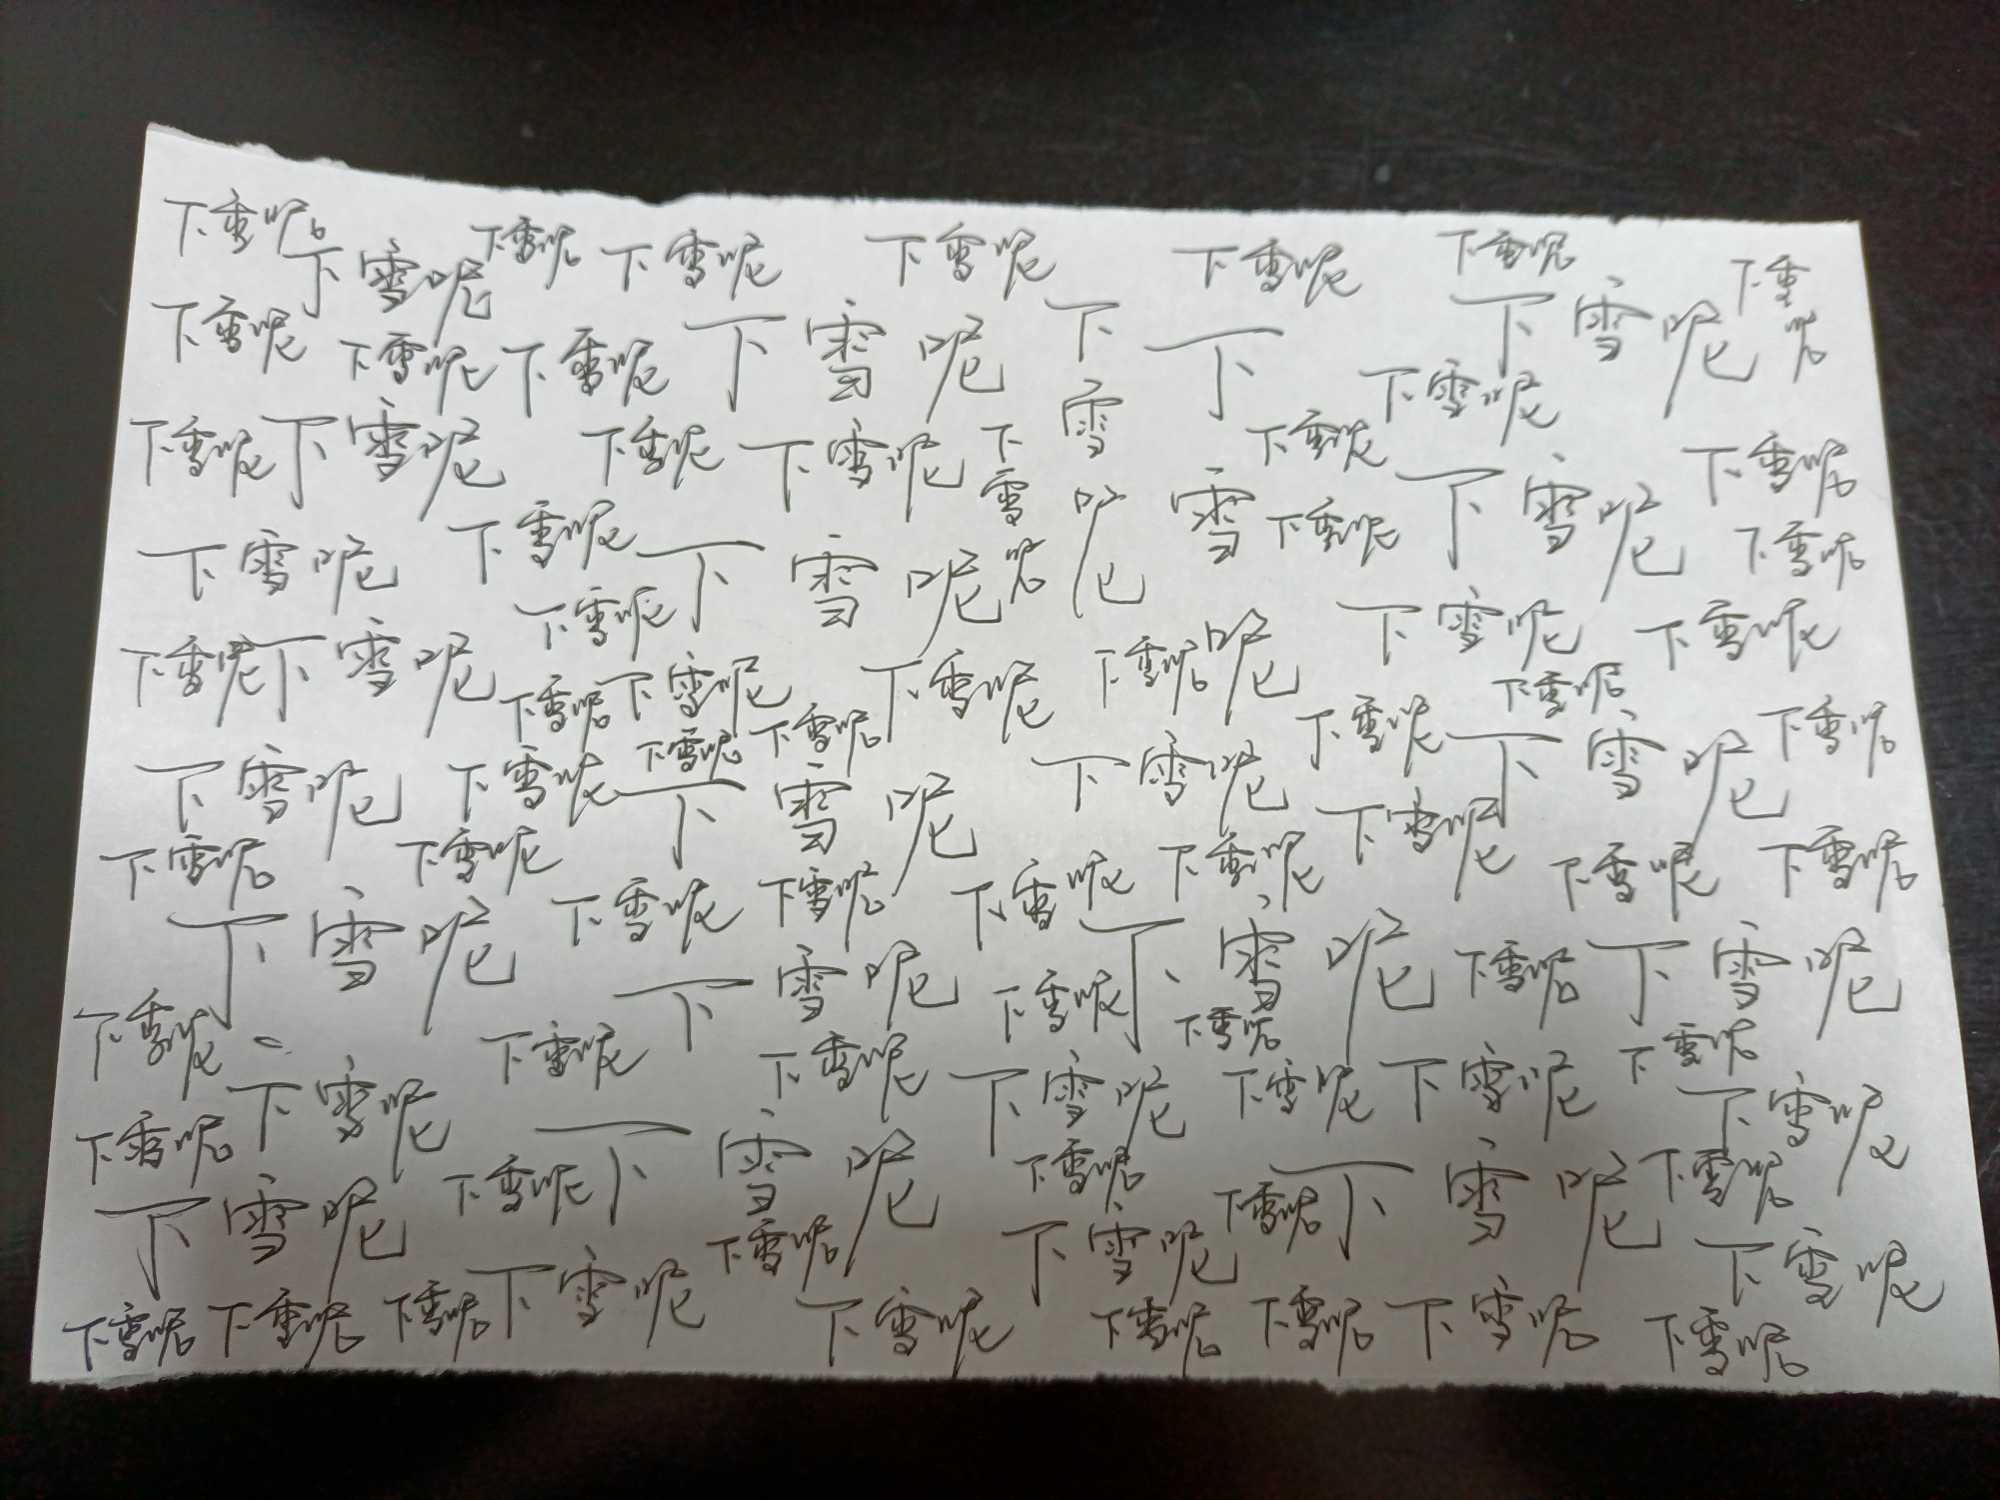 下雪呢 下雪呢 下雪呢 下雪呢 下雪呢 下雪呢 下雪呢 下雪呢
下雪呢 下雪呢 下雪呢 下雪呢 下雪呢 下雪呢 下雪呢 下雪呢
下雪呢 下雪呢 下雪呢 下雪呢 下雪呢 下雪呢 下雪呢 下雪呢
下雪呢 下雪呢 下雪呢 下雪呢 下雪呢
下雪呢 下雪呢 下雪呢 下雪呢 下雪呢 下雪呢 下雪呢
下雪呢 下雪呢 下雪呢 下雪呢 下雪呢 下雪呢
下雪呢 下雪呢 下雪呢 下雪呢 下雪呢 下雪呢 下雪呢
下雪呢 下雪呢 下雪呢 下雪呢 下雪呢 下雪呢 下雪呢 下雪呢
下雪呢 下雪呢 下雪呢 下雪呢 下雪呢 下雪呢 下雪呢
下雪呢 下雪呢 下雪呢 下雪呢 下雪呢 下雪呢
下雪呢 下雪呢 下雪呢 下雪呢 下雪呢 下雪呢 下雪呢
下雪呢 下雪呢 下雪呢 下雪呢 下雪呢 下雪呢 下雪呢
下雪呢 下雪呢 下雪呢 下雪呢 下雪呢 下雪呢
下雪呢 下雪呢 下雪呢 下雪呢 下雪呢 下雪呢 下雪呢 下雪呢 下雪呢